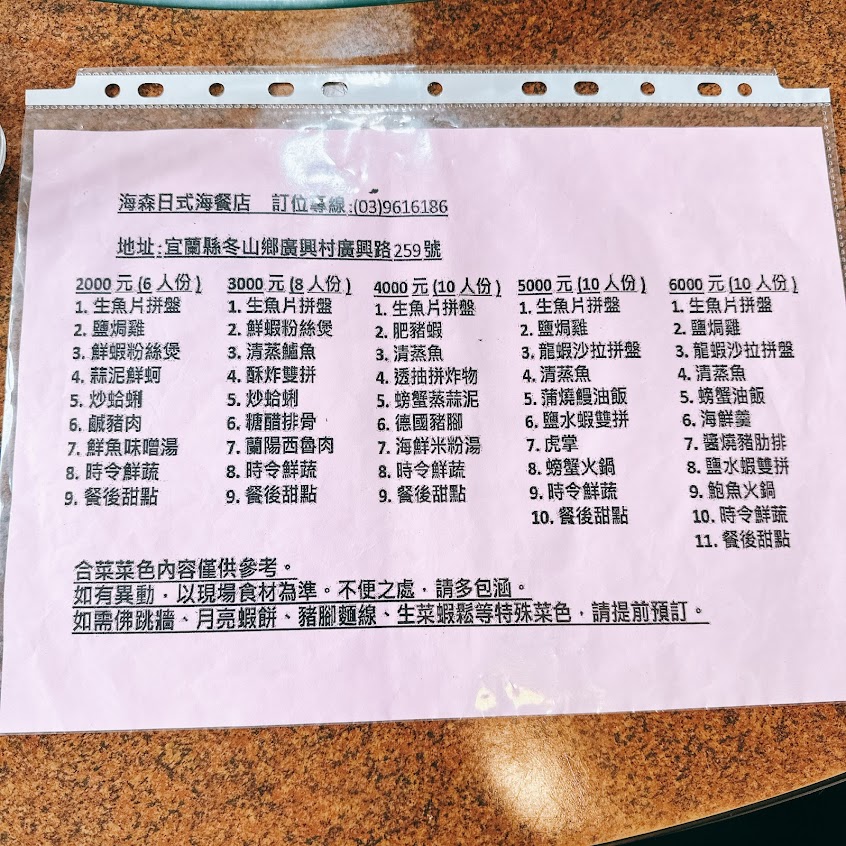 海森日式海餐店 訂位專線:(03)9616186
地址:宜蘭縣冬山鄉廣興村廣興路259號
2000元(6人份)
1. 生魚片拼盤
2. 鹽焗雞
3. 鮮蝦粉絲煲
4. 蒜泥鮮蚵
5. 炒蛤蜊
6. 鹹豬肉
7. 鮮魚味噌湯
8. 時令鮮蔬
9. 餐後甜點
3000元(8人份)
1. 生魚片拼盤
2. 鮮蝦粉絲煲
3. 清蒸鱸魚
4. 酥炸雙拼
5. 炒蛤蜊
6. 糖醋排骨
7. 蘭陽西魯肉
8. 時令鮮蔬
9. 餐後甜點
4000元(10人份)
1. 生魚片拼盤
2. 肥豬蝦
3. 清蒸魚
4. 透抽拼炸物
5. 螃蟹蒸蒜泥
6. 德國豬腳
7. 海鮮米粉湯
8. 時令鮮蔬
9. 餐後甜點
5000元(10人份)
1. 生魚片拼盤
2. 鹽焗雞
3. 龍蝦沙拉拼盤
4. 清蒸魚
5. 蒲燒鰻油飯
6. 鹽水蝦雙拼
7. 虎掌
8. 螃蟹火鍋
9. 時令鮮蔬
10. 餐後甜點
6000元(10人份)
1. 生魚片拼盤
2. 鹽焗雞
3. 龍蝦沙拉拼盤
4. 清蒸魚
5. 螃蟹油飯
6. 海鮮羹
7. 醬燒豬肋排
8. 鹽水蝦雙拼
9. 鮑魚火鍋
10. 時令鮮蔬
11. 餐後甜點
合菜菜色內容僅供參考。
如有異動，以現場食材為準。不便之處，請多包涵。
如需佛跳牆、月亮蝦餅、豬腳麵線、生菜蝦鬆等特殊菜色，請提前預訂。